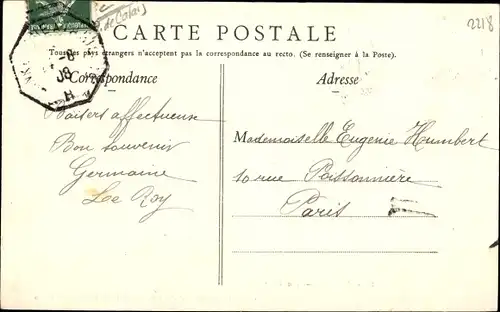 2218
de Calais)
CARTE POSTALE
Tous les pays étrangers n'acceptent pas la correspondance au recto. (Se renseigner à la Poste).
Correspondance
Adresse
8
08
Baisers affectueuse
Bon souvenir
Germaine
Le Roy
Mademoiselle Eugenie Humbert
10 rue Poissonnière
Paris